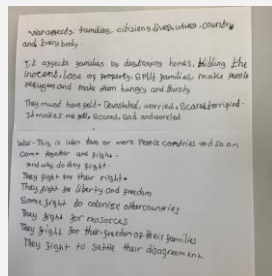 War affects families, citizens lives, wives, country
and Every body.
It affects families by destroying homes, killing the
inocent, Lose of property, Split families, make People
refugees and make them hungry and thirsty
They mund have feld - Devastated, worried, Scared terrified.
It makes me felly, Scared, sad and worried
War - This is when two or more People comtries and so on
come together and fight.
And why do they fight.
They fight for their rights
They fight for liberty and freedom
Some fight to colonise other countries
They fight for resorces
They fight for their freedom of their families
They fight to settle their disagrement